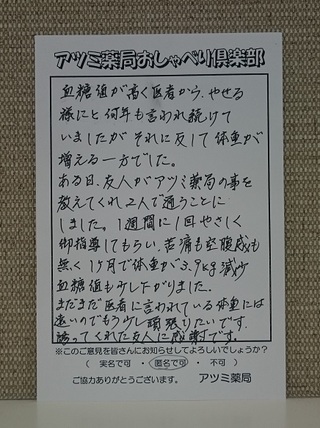 アツミ薬局おしゃべり倶楽部
血糖値が高く医者から、やせる
様にと何年も言われ続けて
いましたがそれに反して体重が
増える一方でした。
ある日、友人がアツミ薬局の事を
教えてくれ2人で通うことに
しました。1週間に1回やさしく
御指導してもらい、苦痛も空腹感も
無く1ヶ月で体重が3.9kg減少
血糖値も少し下がりました。
まだまだ医者に言われている体重には
遠いのでもう少し頑張りたいです。
誘ってくれた友人に感謝です。
※このご意見を皆さんにお知らせしてよろしいでしょうか?
( 実名で可 ・ 匿名で可 ・ 不可 )
ご協力ありがとうございます。 アツミ薬局